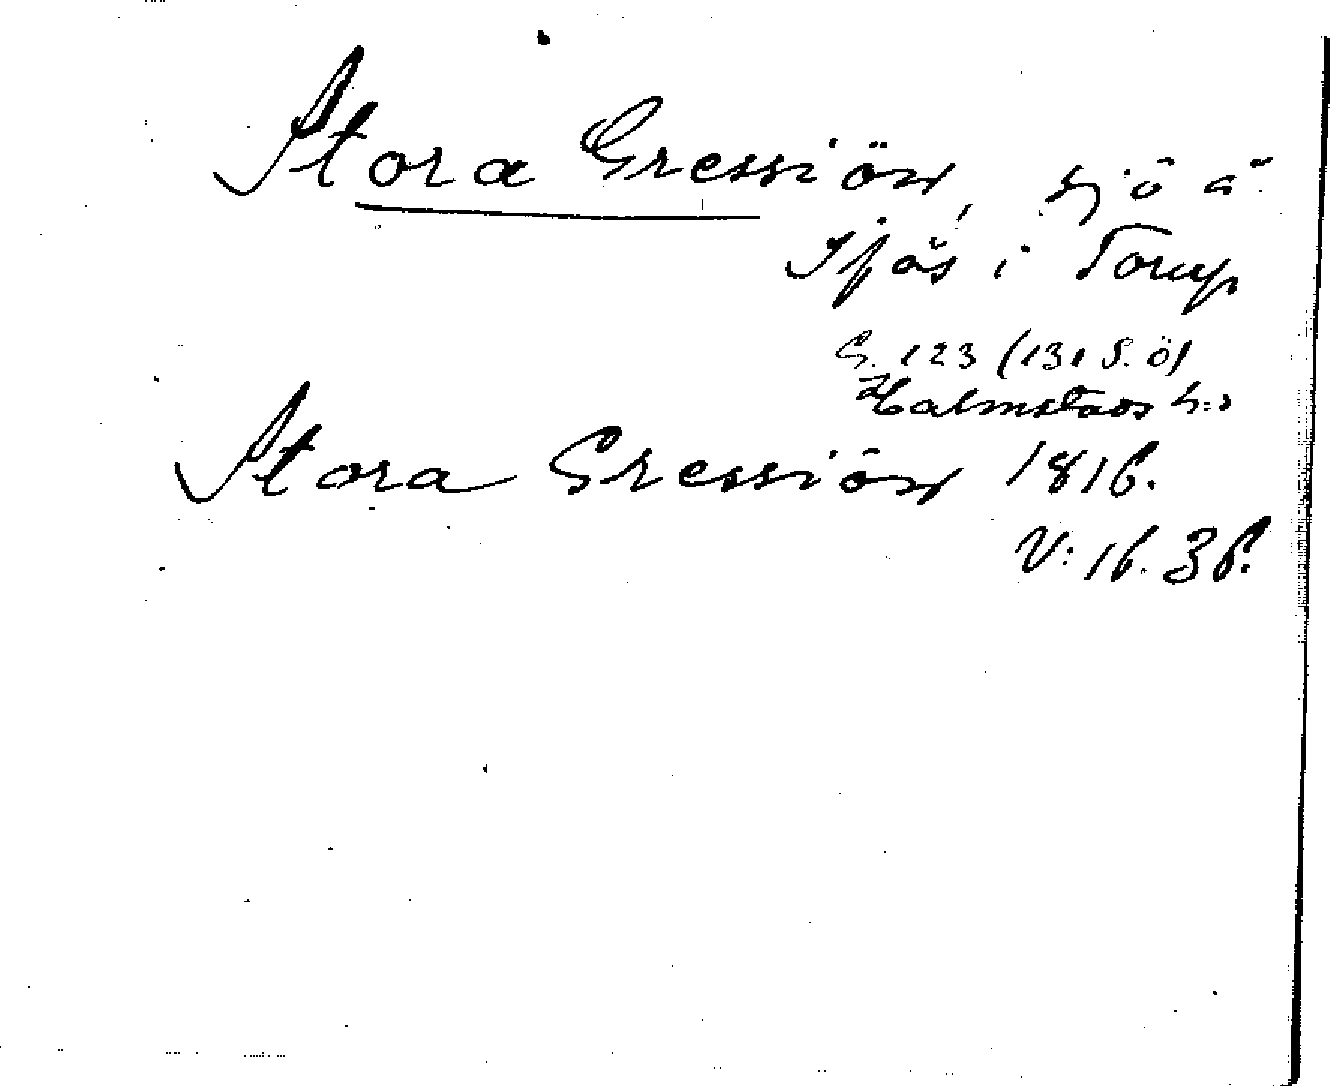 Stora Gressiön, sjö å
Spås i Torup
G. 123 (131 S. Ö)
Halmstads h:d
Stora Gressiön 1816.
V: 16. 36.